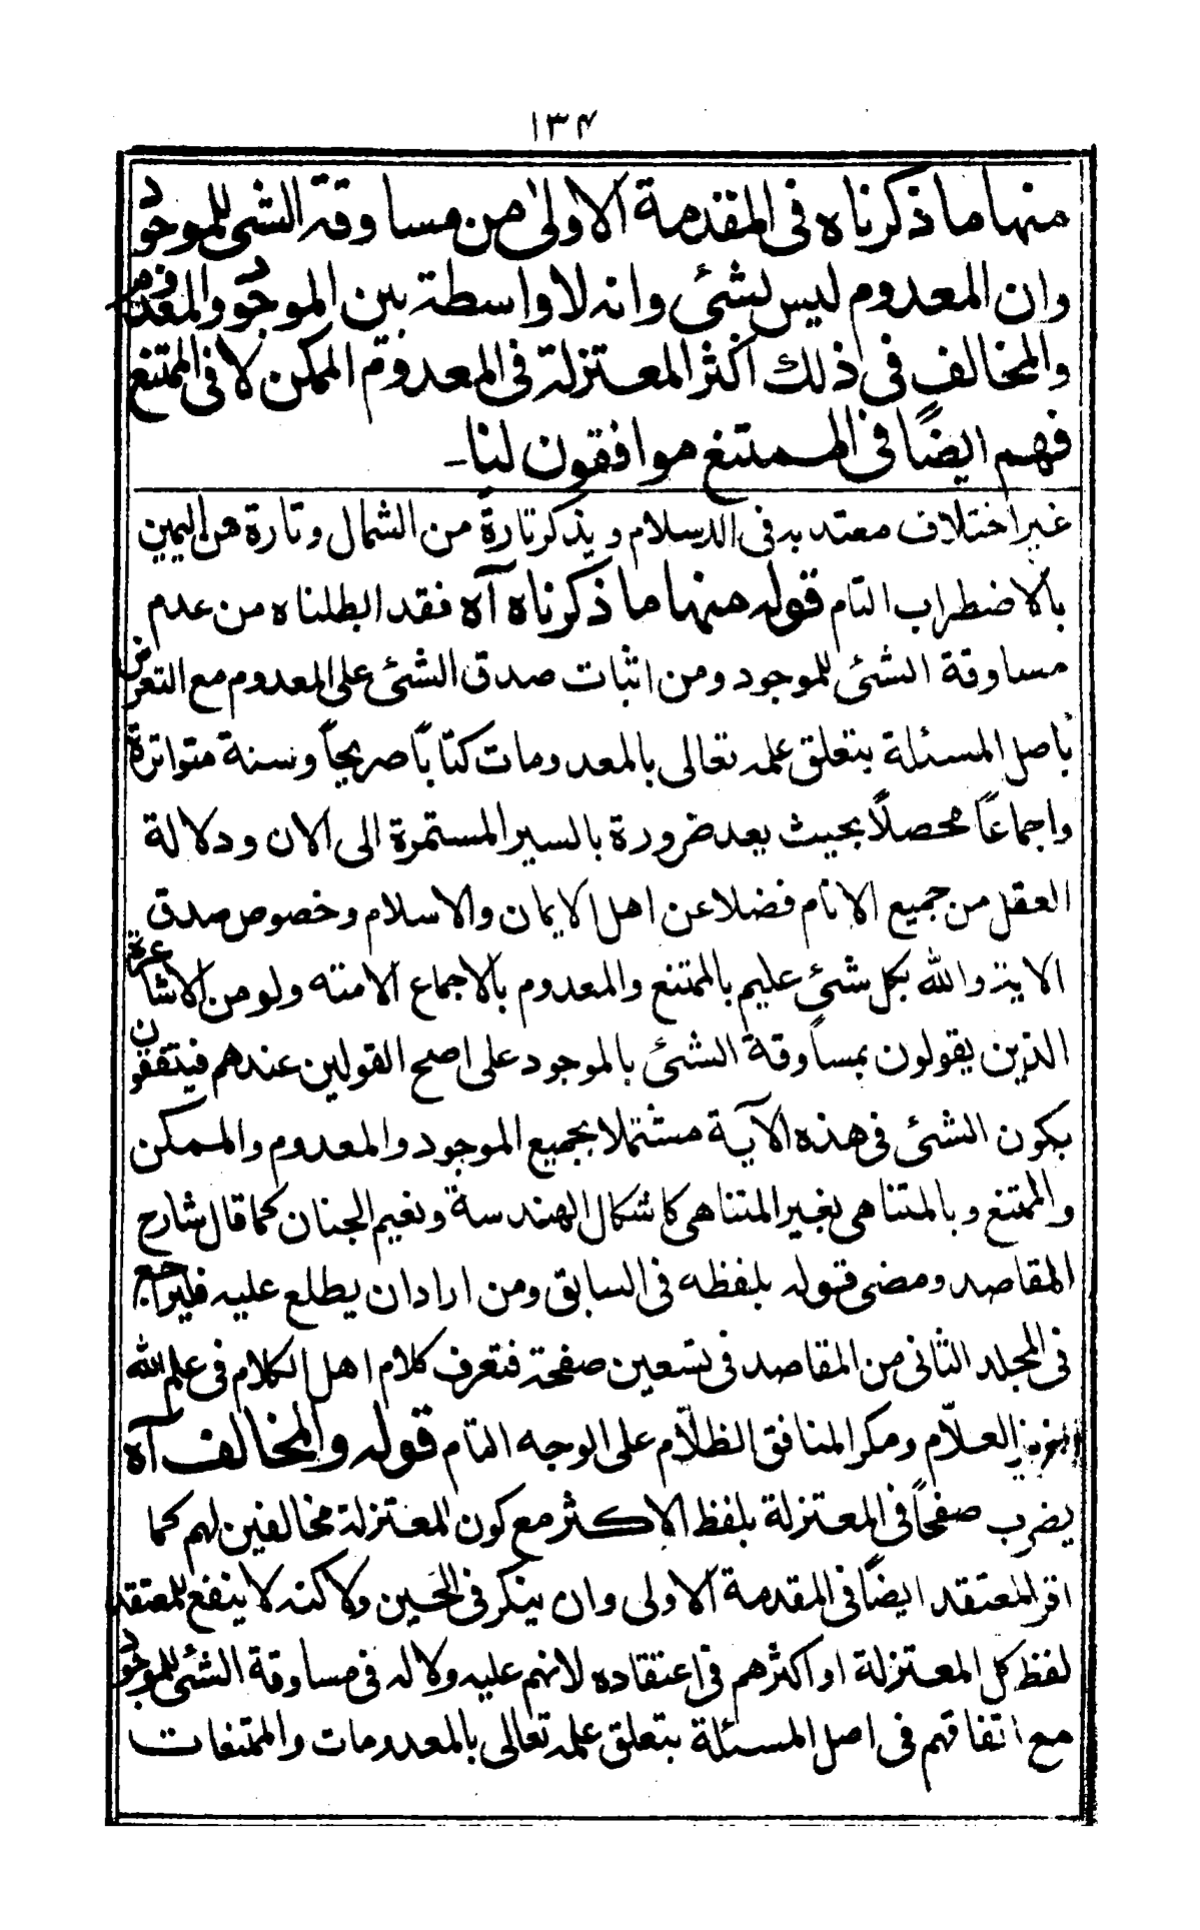 ١٣٤
منها ما ذكرناه فى المقدمة الاولىٰ من مساوقة الشئ للموجود
وان المعدوم ليس بشئ وانه لا واسطة بين الموجود والمعدوم
والمخالف فى ذلك اكثر المعتزلة فى المعدوم الممكن لا فى الممتنع
فهم ايضًا فى الممتنع موافقون لنا۔
غير اختلاف معتد به فى الاسلام ويذكر تارةً من الشمال وتارة من اليمين
بالاضطراب التام قوله منها ما ذكرناه آه فقد ابطلناه من عدم
مساوقة الشئ للموجود ومن اثبات صدق الشئ على المعدوم مع التعرض
باصل المسئلة بتعلق علمه تعالى بالمعدومات كتابًا صريحاً وسنة متواترة
واجماعًا محصلاً بحيث يعد ضرورة بالسير المستمرة الى الان ودلالة
العقل من جميع الانام فضلا عن اهل الايمان والاسلام وخصوص صدق
الاية والله بكل شئ عليم بالممتنع والمعدوم بالاجماع الامته ولو من الاشاعرة
الذين يقولون بمساوقة الشئ بالموجود على اصح القولين عندهم فيتفقون
بكون الشئ فى هذه الآية مشتملا بجميع الموجود والمعدوم والممكن
والممتنع وبالمتناهى بغير المتناهى كاشكال الهندسة ونعيم الجنان كما قال شارح
المقاصد ومضى قوله بلفظه فى السابق ومن اراد ان يطلع عليه فليراجع
فى المجلد الثانى من المقاصد فى تسعين صفحة فتعرف كلام اهل الكلام فى علم الله
العلّام ومكر المنافق الظلّام على الوجه التام قوله والمخالف آه
يضرب صفحاً فى المعتزلة بلفظ الاكثر مع كون المعتزلة مخالفين لهم كما
اقر المعتقد ايضًا فى المقدمة الاولى وان ينكر فى الحَين ولاكنه لا ينفع للمعتقد
لفظ كل المعتزلة او اكثرهم فى اعتقاده لانهم عليه ولا له فى مساوقة الشئ للموجود
مع اتفاقهم فى اصل المسئلة بتعلق علمه تعالى بالمعدومات والممتنعات